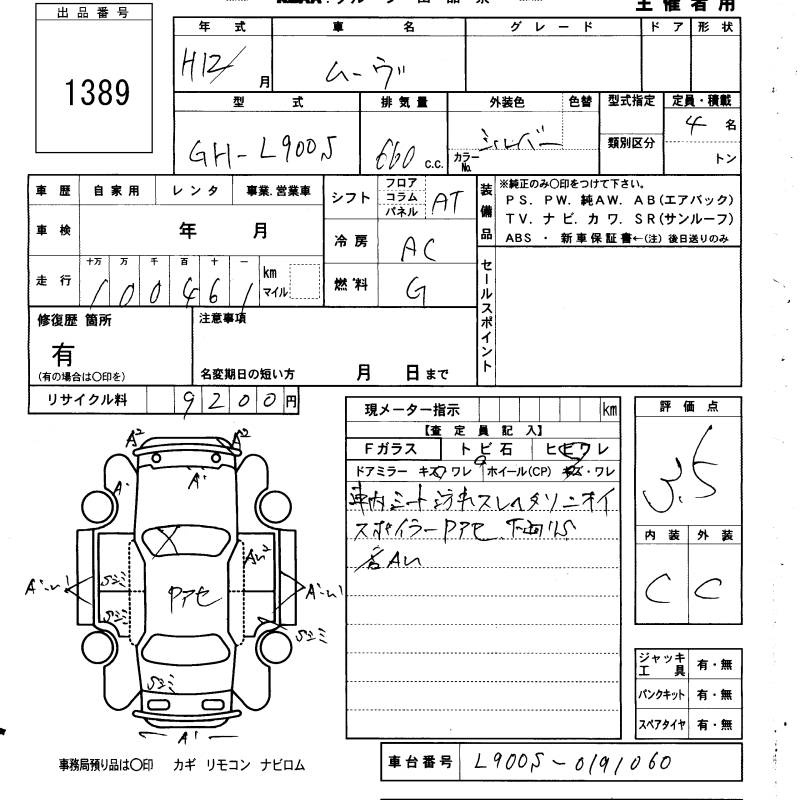 主催者用
出品番号
1389
年式 車名 グレード ドア 形状
H12/ 月 ムーヴ
型式 排気量 外装色 色替 型式指定 定員・積載
GH-L900S 660 c.c. シルバー カラーNo. 類別区分 4 名
トン
車歴 自家用 レンタ 事業.営業車 シフト フロア コラム パネル AT
装備品 ※純正のみ〇印をつけて下さい。
PS. PW. 純AW. AB(エアバック)
TV. ナビ. カワ. SR(サンルーフ)
ABS ・ 新車保証書←(注) 後日送りのみ
車検 年 月 冷房 AC
走行 十万 万 千 百 十 一 km マイル
100461
燃料 G
セールスポイント
修復歴 箇所 注意事項
有
(有の場合は〇印を) 名変期日の短い方 月 日まで
リサイクル料 9200円
現メーター指示 km
【査定員記入】
Fガラス トビ石 ヒビワレ
ドアミラー キズ ワレ ホイール(CP) キズ・ワレ
車内シート汚れスレヘタリニオイ
スポイラーPアセ 下廻りS
各AU
評価点
3.5
内装 外装
C C
A2 A2
A' A'
AU2
Sシミ
Sシミ
Pアセ
Sシミ
Sシミ
A'
ジャッキ工具 有・無
パンクキット 有・無
スペアタイヤ 有・無
事務局預り品は〇印 カギ リモコン ナビロム
車台番号 L900S-0191060